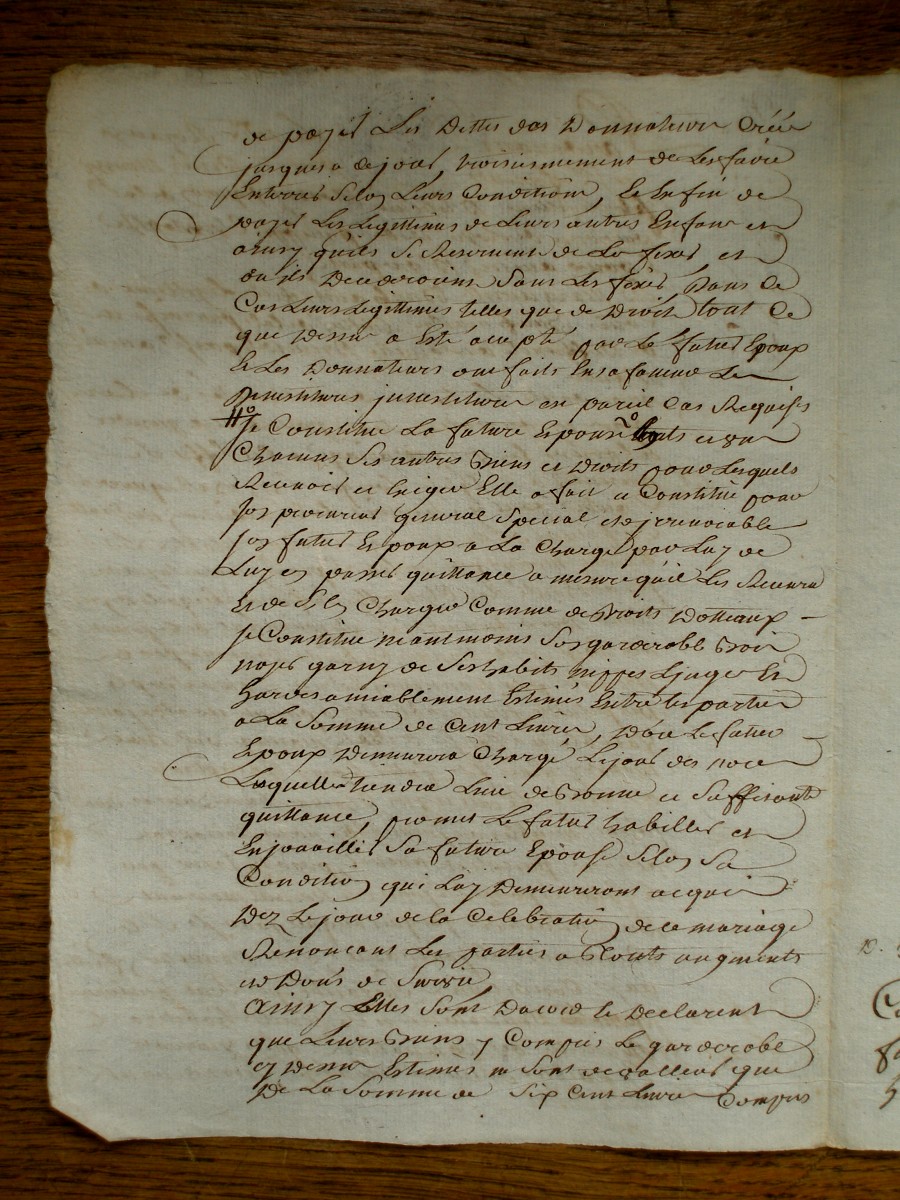 de payer Les Dettes des Donnateurs Créés
jusques a ce jour, troisiesmement de Les faire
Enterrer Selon Leurs Conditions, Et Enfin de
payer Les Legittimes de Leurs autres Enfans et
ainsy quils Se Reservent de La fixer, et
ou ils Decederoient Sans Les fixer, Dans Ce
Cas Leurs Legittimes telles que de Droit, tout Ce
que Dessus a Esté accepté par Le futur Epoux
Et Les Donnateurs ont faits En sa faveur Les
jnvestitures en pareil Cas Requises
11o Se Constitue La future Epouse touts et un
Chacuns Ses autres Biens et Droits pour Lesquels
Recevoir et Exiger Elle a fait et Constitué pour
son procureur general Special et jrrevocable
son futur Epoux a La Charge par Luy de
Luy en passer quittance a mesure quil Les Recevra
Et de S'en Charger Comme de Droits Dotteaux
Se Constitue neantmoins Son garderobe Bois
noyer garny de Ses habits nippes Linges Et
hardes amiablement Estimés Entre les parties
a La Somme de Cent Livres, Dont Le futur
Epoux Demeurera Chargé Le jour des noces
Lesquelles tiendra Lieu de Bonne et Suffisante
quittance, promet Le futur habiller et
Enjoailler Sa future Epouse Selon Sa
Condition qui Luy Demeureront acquis
Dez Le jour de la Celebration de ce mariage
Renonceant Les parties a touts augments
et Dons de Survie
Ainsy Elles Sont D'acord et Declarent
que Leurs Biens y Compris Le garderobe
cy Dessus Estimés ne Sont de valleur que
De La Somme de Six Cent Livres Compris